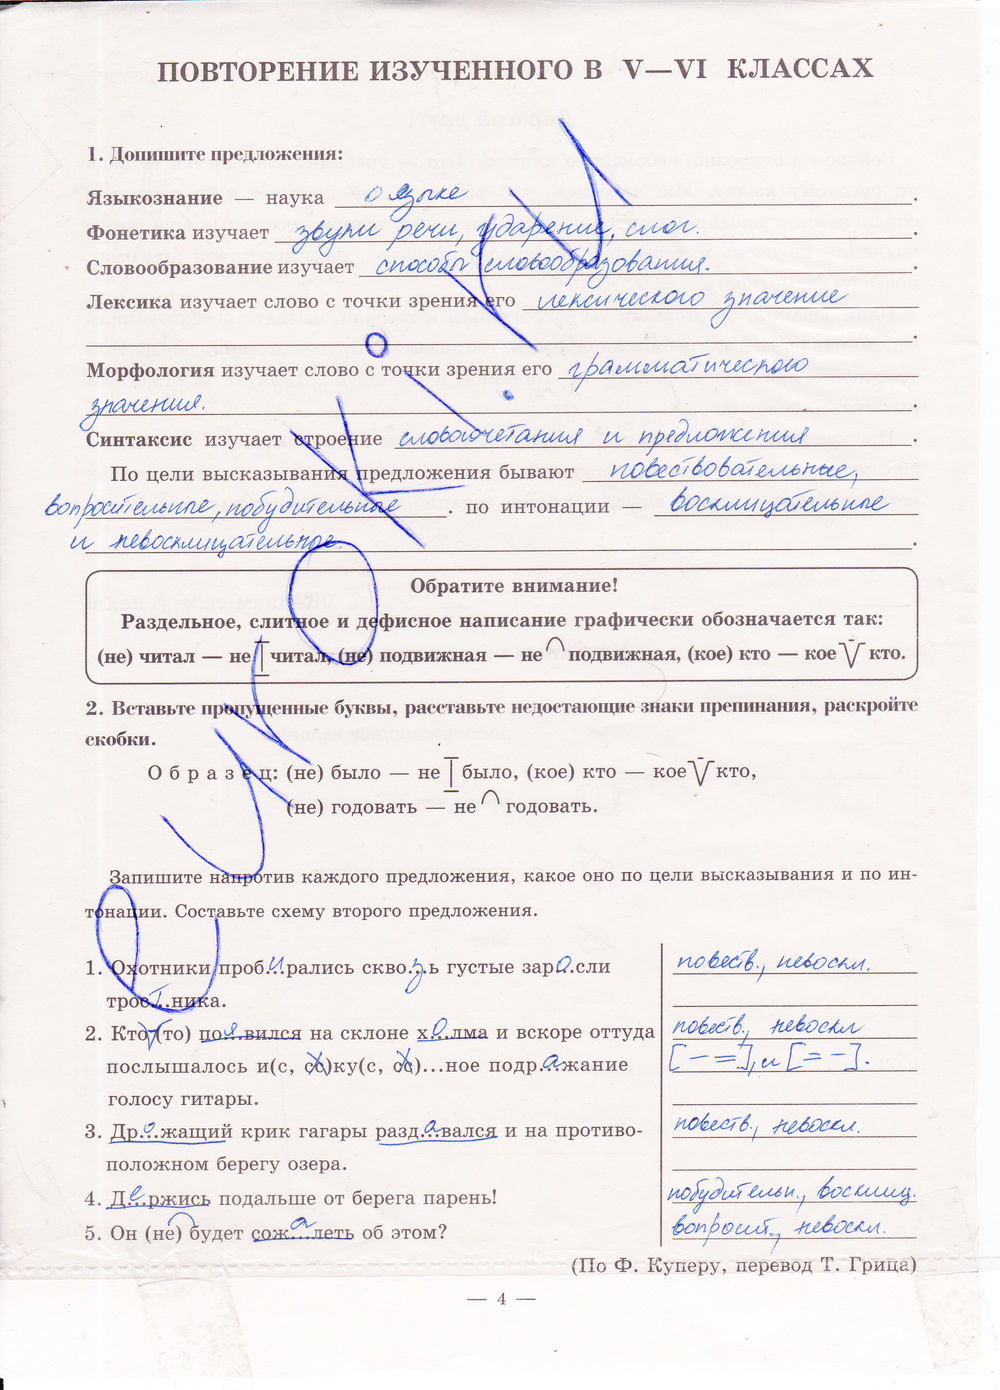 ПОВТОРЕНИЕ ИЗУЧЕННОГО В V—VI КЛАССАХ
1. Допишите предложения:
Языкознание — наука о языке.
Фонетика изучает звуки речи, ударение, слог.
Словообразование изучает способы словообразования.
Лексика изучает слово с точки зрения его лексического значение
.
Морфология изучает слово с точки зрения его грамматического
значения.
Синтаксис изучает строение словосочетания и предложения.
По цели высказывания предложения бывают повествовательные,
вопросительные, побудительные. по интонации — восклицательные
и невосклицательное.
Обратите внимание!
Раздельное, слитное и дефисное написание графически обозначается так:
(не) читал — не читал, (не) подвижная — не подвижная, (кое) кто — кое кто.
2. Вставьте пропущенные буквы, расставьте недостающие знаки препинания, раскройте
скобки.
Образец: (не) было — не было, (кое) кто — кое кто,
(не) годовать — не годовать.
Запишите напротив каждого предложения, какое оно по цели высказывания и по ин-
тонации. Составьте схему второго предложения.
1. Охотники проб...и...рались скво...з...ь густые зар...о...сли повеств., невоскл.
трос...т...ника.
2. Кто (то) по...я...вился на склоне х...о...лма и вскоре оттуда повеств., невоскл
послышалось и(с, сс)ку(с, сс)...ное подр...а...жание [— =], и [= —].
голосу гитары.
3. Др...о...жащий крик гагары разд...а...вался и на противо- повеств., невоскл.
положном берегу озера.
4. Д...е...ржись подальше от берега парень! побудительн., восклиц.
5. Он (не) будет сож...а...леть об этом? вопросит., невоскл.
(По Ф. Куперу, перевод Т. Грица)
— 4 —